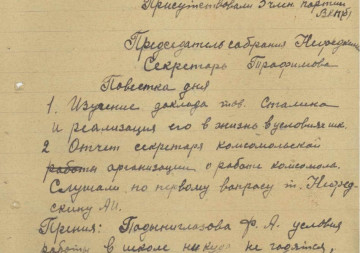 Присутствовали 5 член партии
ВКП(б)
Председатель собрания Нефедкин
Секретарь Трофимова
Повестка дня
1. Изучение доклада тов. Сталина
и реализация его в жизнь в условиях шк.
2 Отчет секретаря комсомольской
работы организации о работе комсомола.
Слушали по первому вопросу т.
Прения: Ф. А. условия
работы в школе никуда не годятся,